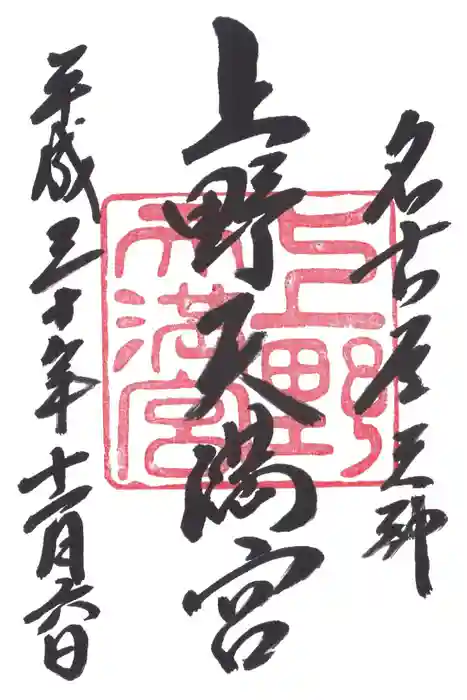 名古屋天神
上野天満宮
平成三十年十一月六日
上野
天満宮